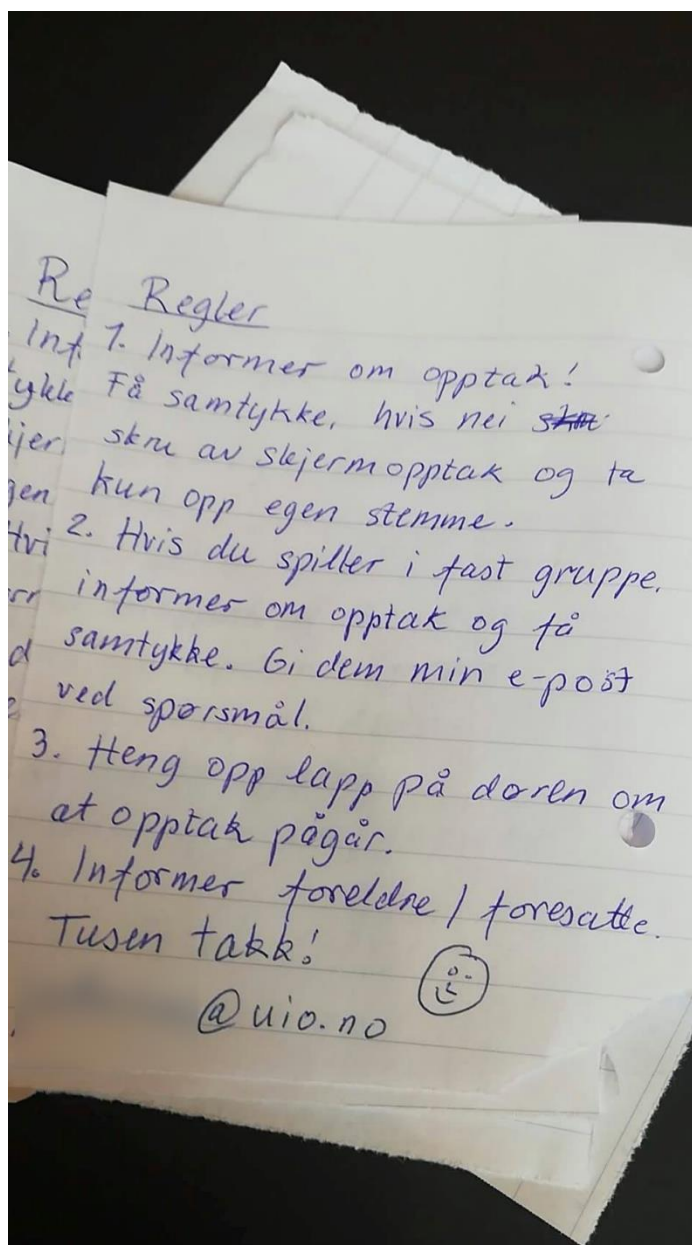 Re
Inf
ykke
kjer
gen
Hvi
d
Regler
1. Informer om opptak!
Få samtykke, hvis nei
skru av skjermopptak og ta
kun opp egen stemme.
2. Hvis du spiller i fast gruppe.
informer om opptak og få
samtykke. Gi dem min e-post
ved spørsmål.
3. Heng opp lapp på døren om
at opptak pågår.
4. Informer foreldre / foresatte.
Tusen takk!
@uio.no